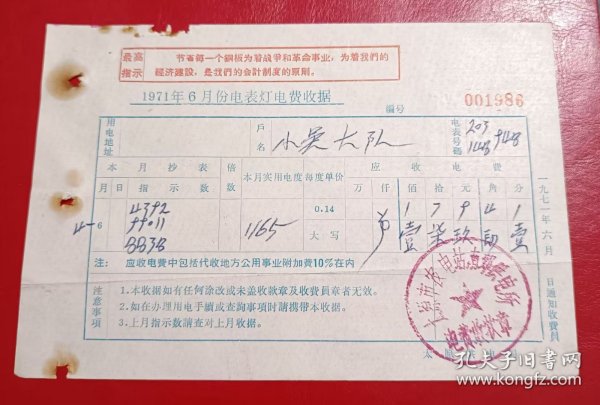 最高指示
节省每一个銅板为着战爭和革命事业，为着我們的
經济建設，是我們的会計制度的原则。
1971年6月份电表灯电费收据
编号 001986
用电地址 戶名 小吴大队 电表号碼 203
本月抄表 倍数 本月实用电度 每度单价 应收电费
月 日 指示数 万 仟 佰 拾 元 角 分
0.14 1 7 9 4 1
6 1165 大写 壹 柒 玖 壹
一九七一年六月 日通知收費員
注： 应收电费中包括代收地方公用事业附加費10％在内
注意事項
1.本收据如有任何涂改或未盖收款章及收費員章者无效。
2.如在办理用电手續或查詢事項时請携带本收据。
3.上月指示数請查对上月收据。
电費收款章
孔夫子旧书网
www.kongfz.com